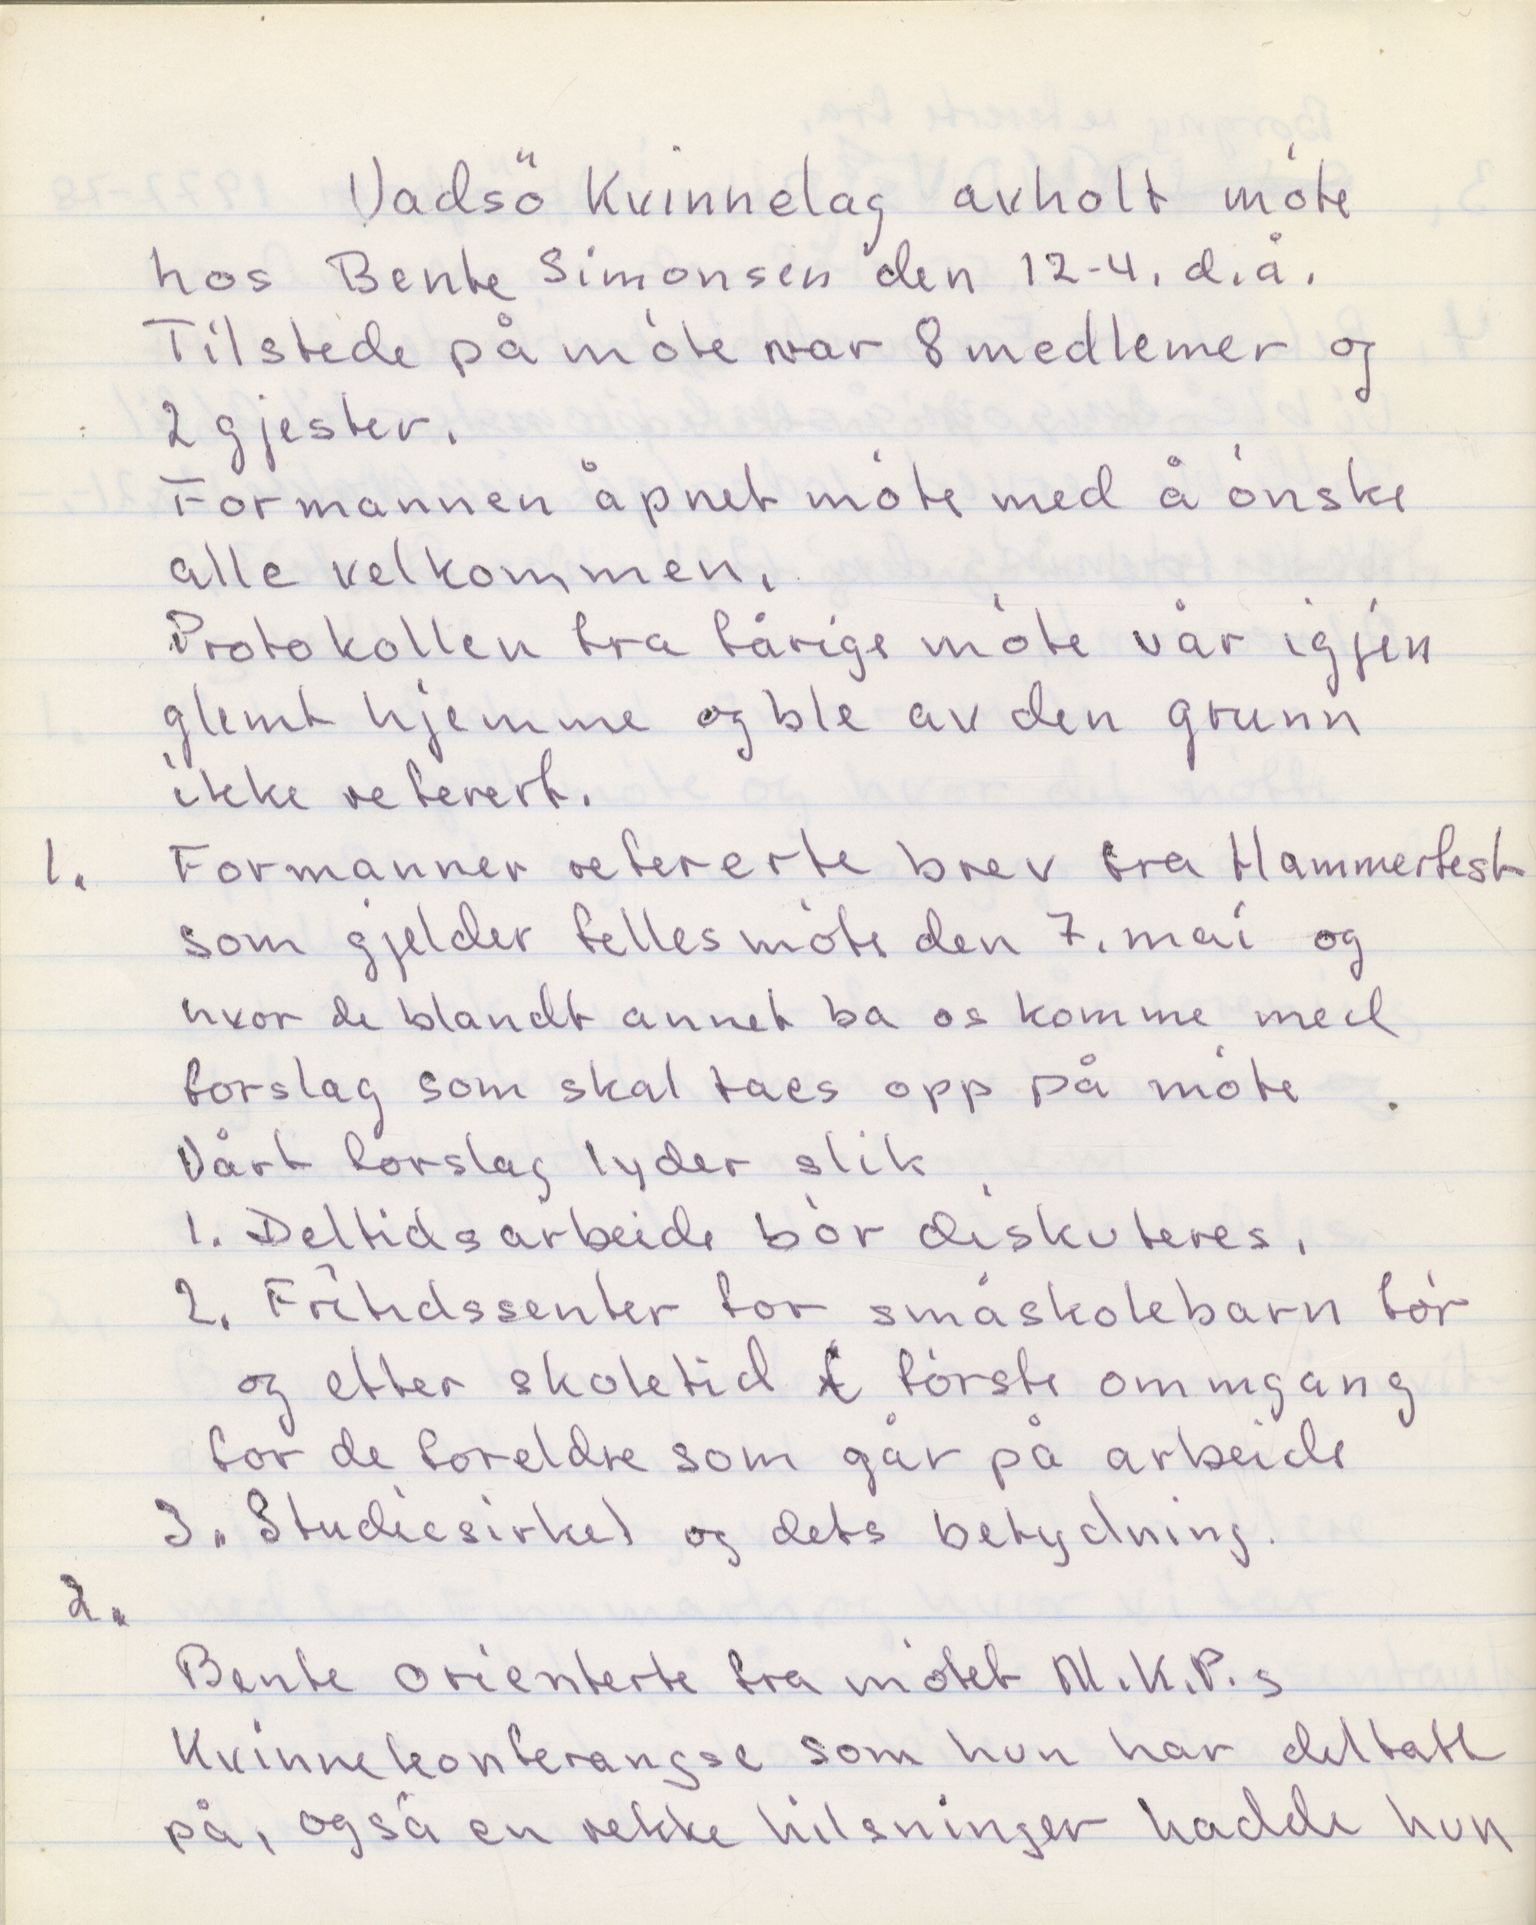 Vadsö Kvinnelag avholt móte
hos Bente Simonsen den 12-4. d.å.
Tilstede på móte var 8 medlemer og
2 gjester.
Formannen åpnet móte med å ónske
alle velkommen.
Protokollen fra fårige móte vår igjen
glemt hjemme og ble av den grunn
ikke referert.
1. Formannen refererte brev fra Hammerfest
som gjelder fellesmóte den 7. mai og
hvor de blandt annet ba os komme med
forslag som skal taes opp på móte.
Vårt forslag lyder slik
1. Deltidsarbeide bór diskuteres.
2. Fritidssenter for småskolebarn fór
og etter skoletid i fórste ommgang
for de foreldre som går på arbeide
3. Studiesirkel og dets betydning.
2.
Bente orienterte fra mótet N.K.P.s
Kvinnekonferangse som hun har deltatt
på, også en rekke hilsninger hadde hun